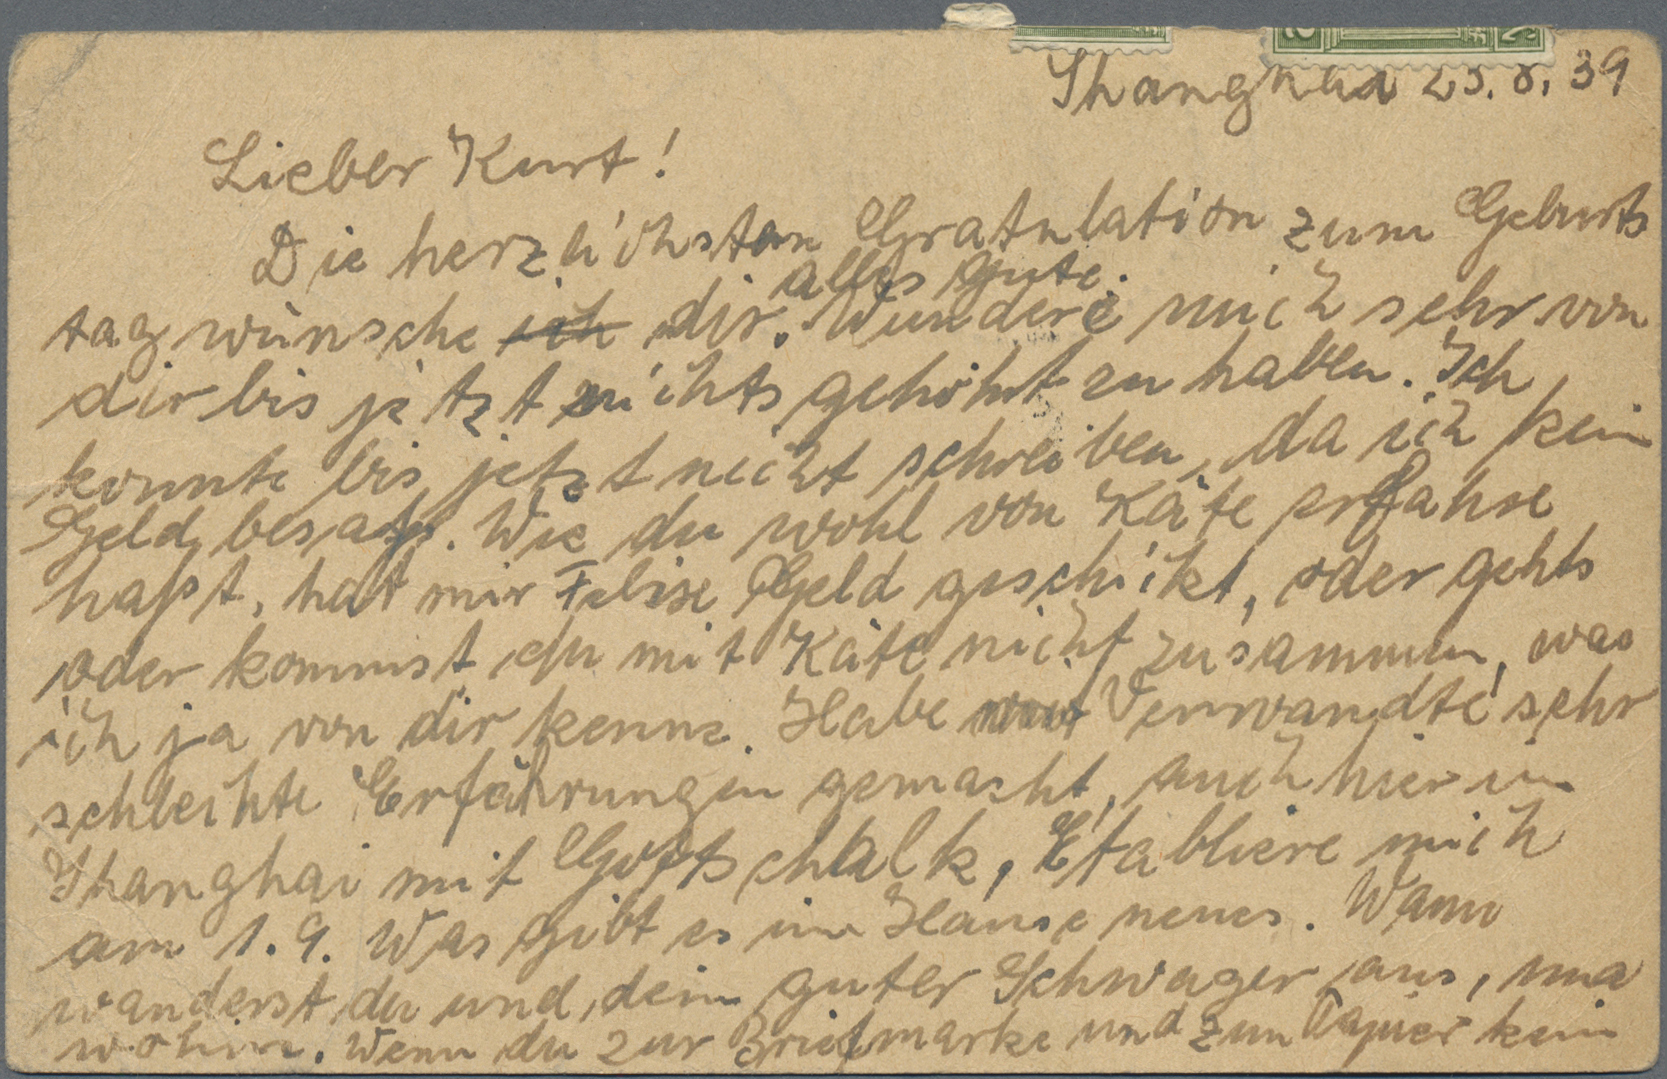 Shanghai 25.8.39
Lieber Kurt!
Die herzlichsten Gratulation zum Geburts
alles gute.
tag wünsche ich dir. Wundere mich sehr von
dir bis jetzt nichts gehöhrt zu haben. Ich
konnte bis jetzt nicht schreiben, da ich kein
Geld besaß. Wie du wohl von Käte erfahre
haßt, hat mir Geld geschikt, oder gehts
oder kommst du mit Käte nicht zusammen, was
ich ja von dir kenne. Habe Verwandte sehr
schleichte Erfahrungen gemacht, auch hier in
Shanghai mit Gottschalk, Etabliere mich
am 1.9. Was gibt es im Hause neues. Wann
wanderst du und dein guter Schwager aus, una
wohin. Wenn du zur Briefmarke und zum Papier kein